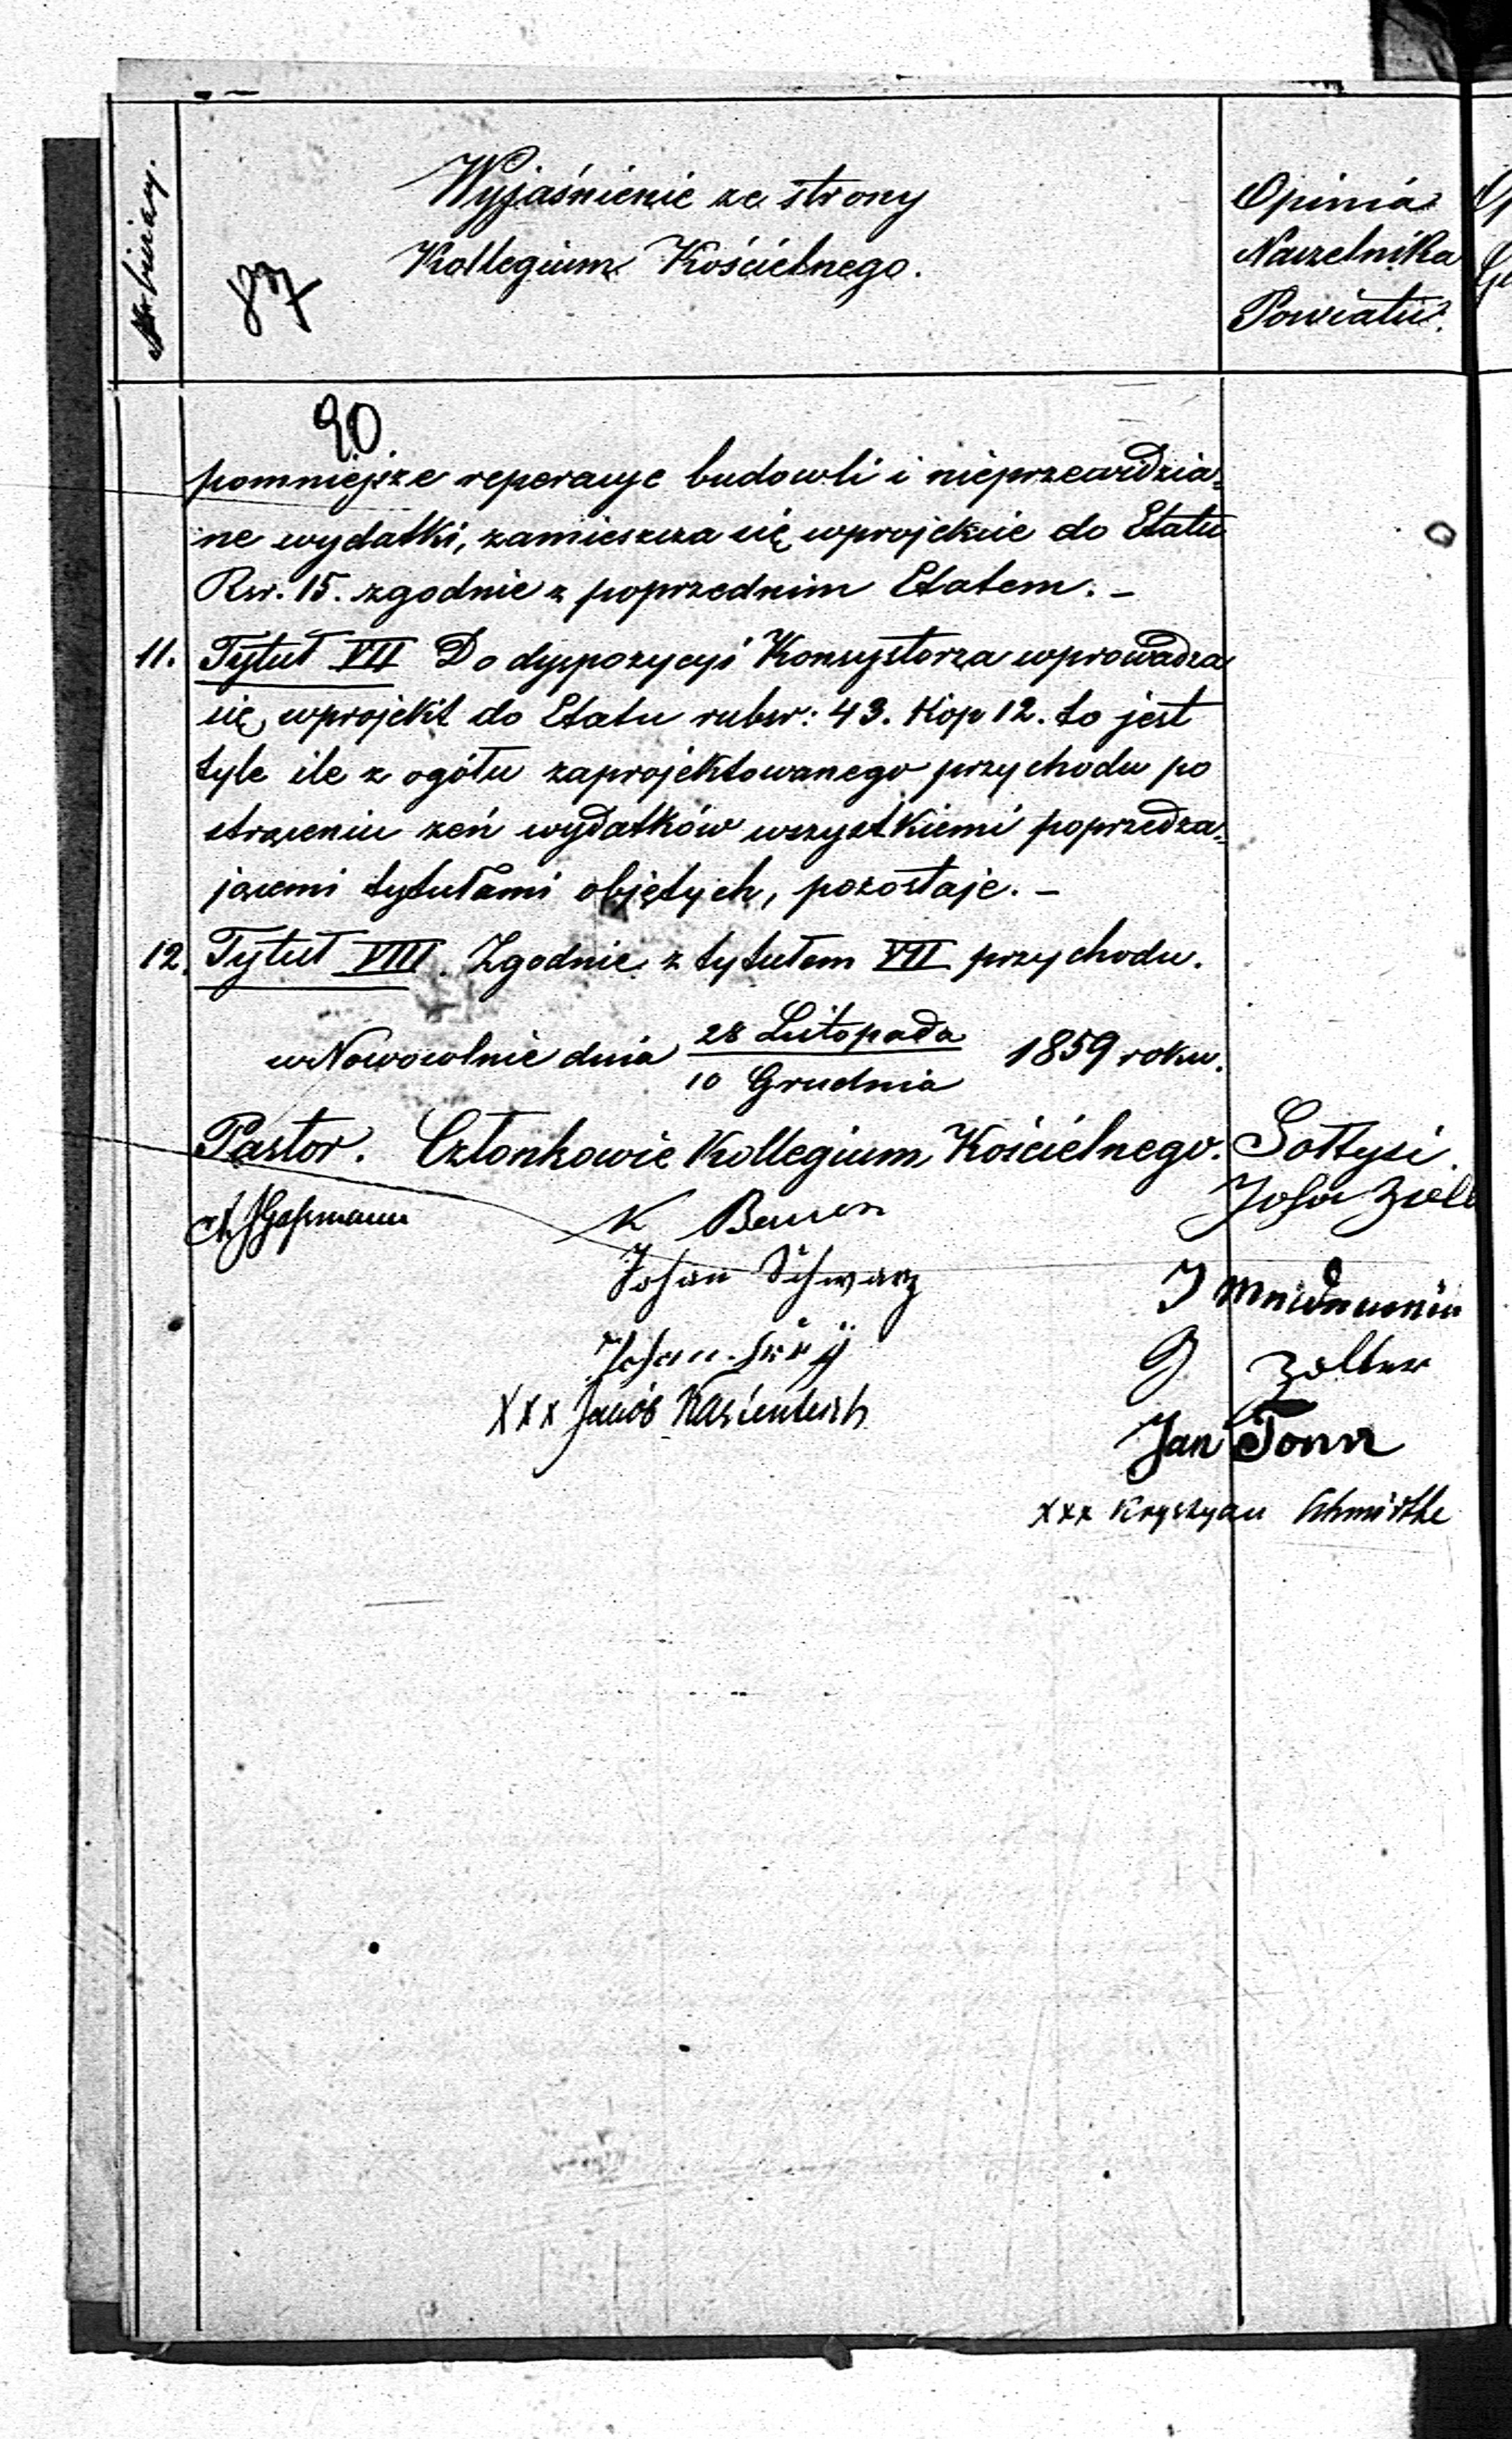 Nr bieżący.
Wyjaśnienie ze strony
Kollegium Kościelnego.
Opinia
Naczelnika
Powiatu.
87
90
pomniejsze reperacye budowli i nieprzewidzia=
ne wydatki, zamieszcza się wprojekcie do Etatu
Rsr. 15. zgodnie z poprzednim Etatem. –
11. Tytuł VII Do dyspozycyi Konsystorza wprowadza
się wprojekt do Etatu rubsr: 43. Kop 12. to jest
tyle ile z ogółu zaprojektowanego przychodu po
strąceniu zeń wydatków wszystkiemi poprzedza=
jącemi tytułami objętych, pozostaje. –
12. Tytuł VIII. Zgodnie z tytułem VII przychodu.
wNowowolnie dnia 28 Listopada / 10 Grudnia 1859 roku.
Pastor. Członkowie Kollegium Kościelnego. Sołtysi.
K Bauer
Johan Schwarz
Johan
XXX Jakób
J
J Zolter
Jan Tonn
XXX Krystyan Schmidtke